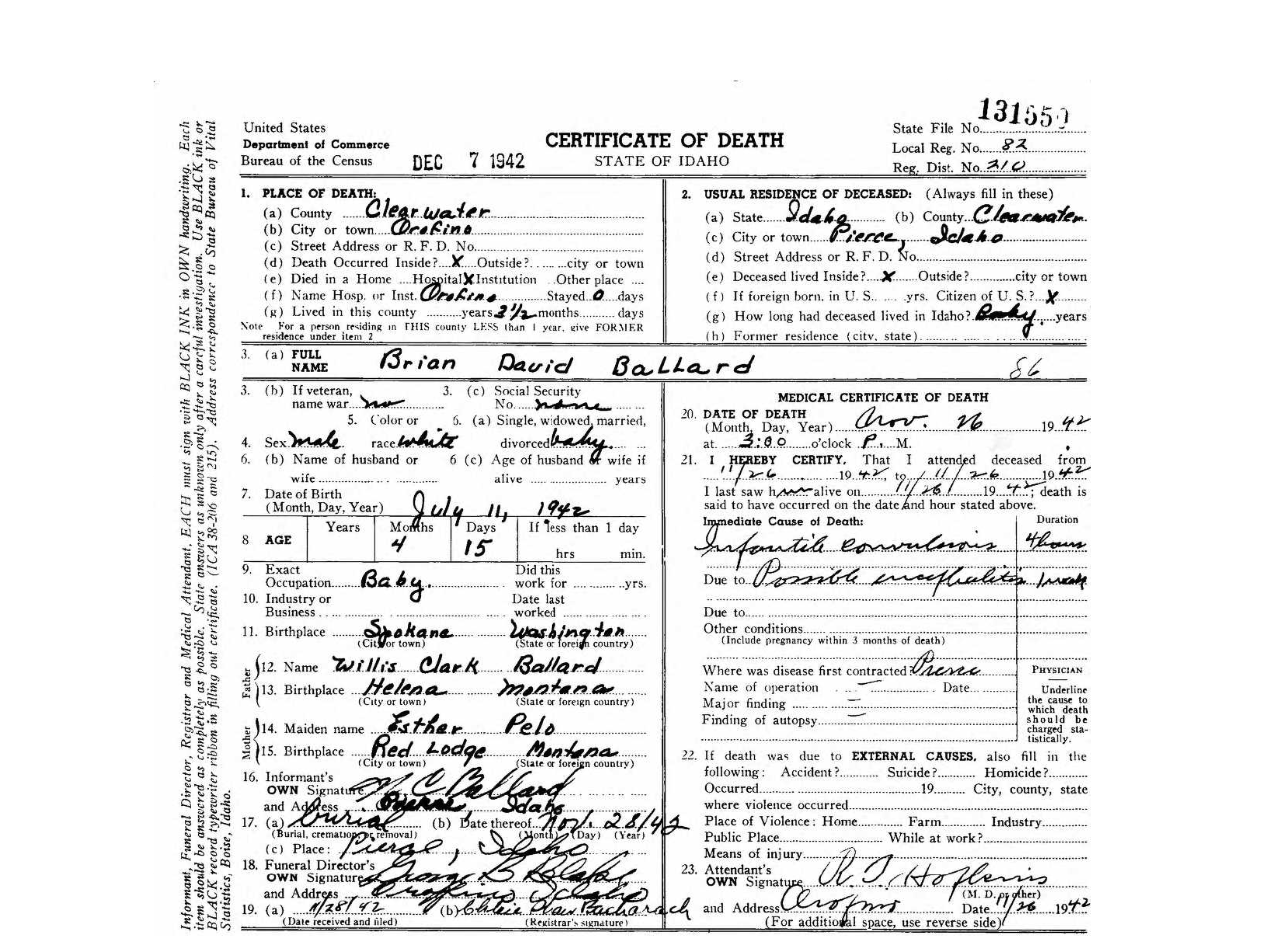 131550
State File No.
United States
Department of Commerce
Bureau of the Census
DEC 7 1942
CERTIFICATE OF DEATH
STATE OF IDAHO
Local Reg. No. 82
Reg. Dist. No. 210
Informant, Funeral Director, Registrar and Medical Attendant, EACH must sign with BLACK INK in OWN handwriting. Each
item should be answered as completely as possible. State answers as unknown only after a careful investigation. Use BLACK ink or
BLACK record typewriter ribbon in filling out certificate. (ICA 38-206 and 215). Address correspondence to State Bureau of Vital
Statistics, Boise, Idaho.
1. PLACE OF DEATH:
(a) County Clearwater
(b) City or town Orofino
(c) Street Address or R. F. D. No.
(d) Death Occurred Inside? X Outside? city or town
(e) Died in a Home Hospital X Institution Other place
(f) Name Hosp. or Inst. Orofino Stayed 0 days
(g) Lived in this county years 3 1/2 months days
Note For a person residing in THIS county LESS than 1 year, give FORMER
residence under item 2
2. USUAL RESIDENCE OF DECEASED: (Always fill in these)
(a) State Idaho (b) County Clearwater
(c) City or town Pierce, Idaho
(d) Street Address or R. F. D. No.
(e) Deceased lived Inside? X Outside? city or town
(f) If foreign born, in U. S. yrs. Citizen of U. S.? X
(g) How long had deceased lived in Idaho? Baby years
(h) Former residence (city, state)
3. (a) FULL NAME Brian David Ballard
86
3. (b) If veteran, name war no
3. (c) Social Security No. none
4. Sex male
5. Color or race white
6. (a) Single, widowed, married, divorced baby
6. (b) Name of husband or wife
6 (c) Age of husband or wife if alive years
7. Date of Birth (Month, Day, Year) July 11, 1942
8 AGE Years Months 4 Days 15 If less than 1 day hrs min.
9. Exact Occupation Baby
Did this work for yrs.
10. Industry or Business
Date last worked
11. Birthplace Spokane Washington
(City or town) (State or foreign country)
Father
12. Name Willis Clark Ballard
13. Birthplace Helena Montana
(City or town) (State or foreign country)
Mother
14. Maiden name Esther Pelo
15. Birthplace Red Lodge Montana
(City or town) (State or foreign country)
16. Informant's OWN Signature W C Ballard
and Address Pierce, Idaho
17. (a) Burial (b) Date thereof Nov. 28/42
(Burial, cremation or removal) (Month) (Day) (Year)
(c) Place: Pierce, Idaho
18. Funeral Director's OWN Signature George B
and Address Orofino Idaho
19. (a) 11/28/42 (b) Bacharach
(Date received and filed) (Registrar's signature)
MEDICAL CERTIFICATE OF DEATH
20. DATE OF DEATH
(Month, Day, Year) Nov. 26 1942
at 3:00 o'clock P. M.
21. I HEREBY CERTIFY, That I attended deceased from
11/26 1942, to 11/26 1942
I last saw him alive on 11/26 1942; death is
said to have occurred on the date and hour stated above.
Immediate Cause of Death: Duration
Infantile convulsions 4 hours
Due to Possible encephalitis 1 week
Due to
Other conditions
(Include pregnancy within 3 months of death)
Where was disease first contracted Pierce
Name of operation — Date
Major finding —
Finding of autopsy —
PHYSICIAN
Underline
the cause to
which death
should be
charged sta-
tistically.
22. If death was due to EXTERNAL CAUSES, also fill in the
following: Accident? Suicide? Homicide?
Occurred 19 City, county, state
where violence occurred
Place of Violence: Home Farm Industry
Public Place While at work?
Means of injury
23. Attendant's OWN Signature
(M. D. or other)
and Address Orofino Date 11/26 1942
(For additional space, use reverse side)